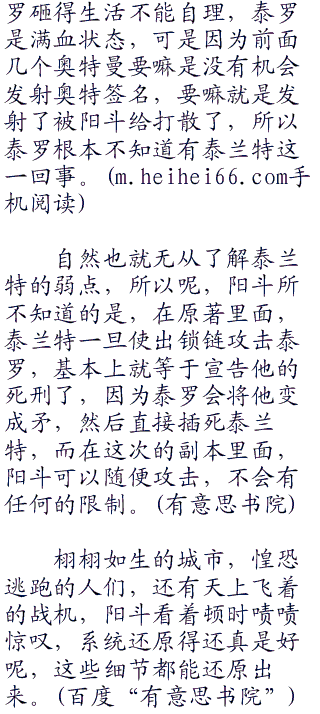 罗砸得生活不能自理，泰罗
是满血状态，可是因为前面
几个奥特曼要嘛是没有机会
发射奥特签名，要嘛就是发
射了被阳斗给打散了，所以
泰罗根本不知道有泰兰特这
一回事。(m.heihei66.com手
机阅读)
自然也就无从了解泰兰
特的弱点，所以呢，阳斗所
不知道的是，在原著里面，
泰兰特一旦使出锁链攻击泰
罗，基本上就等于宣告他的
死刑了，因为泰罗会将他变
成矛，然后直接插死泰兰
特，而在这次的副本里面，
阳斗可以随便攻击，不会有
任何的限制。(有意思书院)
栩栩如生的城市，惶恐
逃跑的人们，还有天上飞着
的战机，阳斗看着顿时啧啧
惊叹，系统还原得还真是好
呢，这些细节都能还原出
来。(百度“有意思书院”)